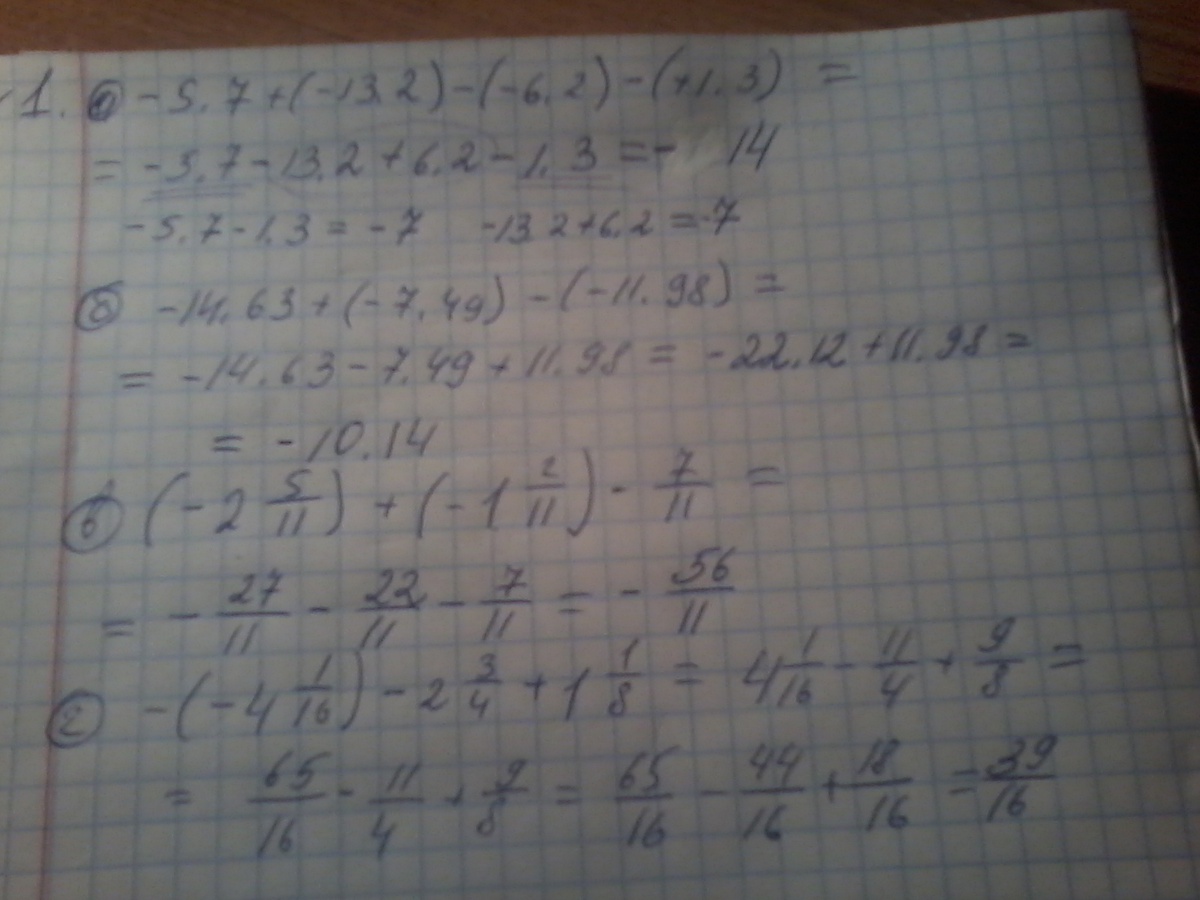 1. а) -5.7+(-13.2)-(-6.2)-(+1.3) =
= -5.7-13.2+6.2-1.3 = -14
-5.7-1.3 = -7 -13.2+6.2 = -7
б) -14.63+(-7.49)-(-11.98) =
= -14.63-7.49+11.98 = -22.12+11.98 =
= -10.14
в) (-2 5/11) + (-1 2/11) - 7/11 =
= - 27/11 - 22/11 - 7/11 = - 56/11
г) -(-4 1/16) - 2 3/4 + 1 1/8 = 4 1/16 - 11/4 + 9/8 =
= 65/16 - 11/4 + 9/8 = 65/16 - 44/16 + 18/16 = 39/16